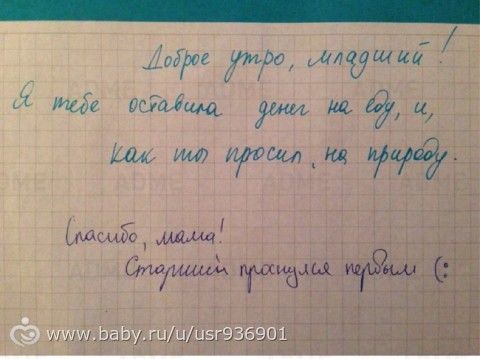 Доброе утро, младший!
Я тебе оставила денег на еду, и,
как ты просил, на природу.
Спасибо, мама!
Старший проснулся первым (:
www.baby.ru/u/usr936901